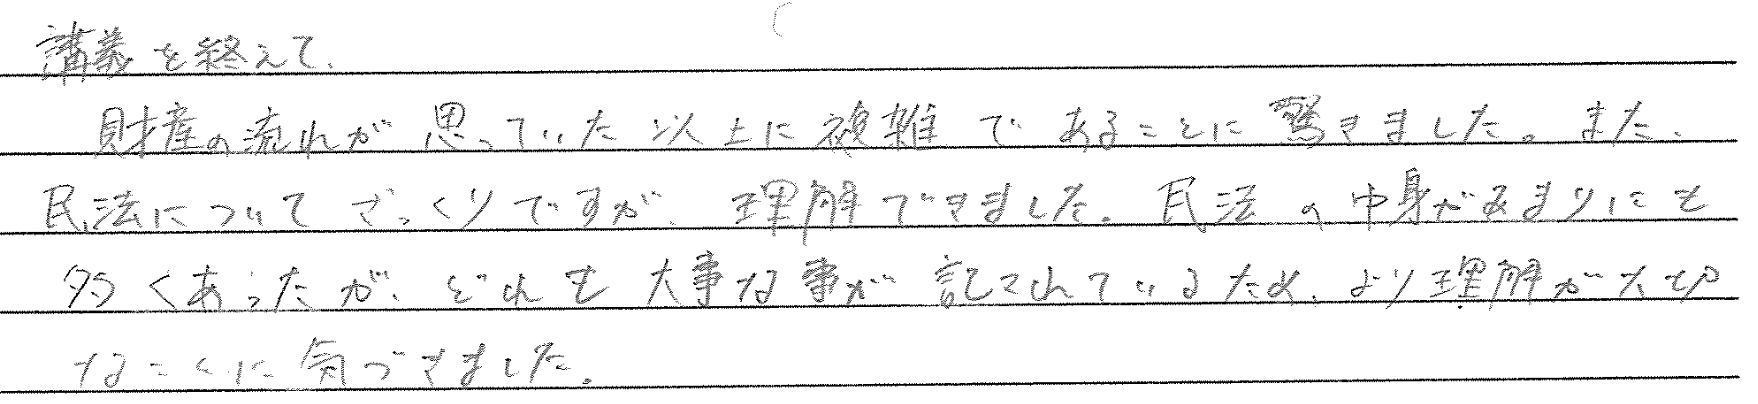 講義を終えて、
財産の流れが思っていた以上に複雑であることに驚きました。また、
民法についてざっくりですが、理解できました。民法の中身があまりにも
多くあったが、どれも大事な事が記されているため、より理解が大切
なことに気づきました。